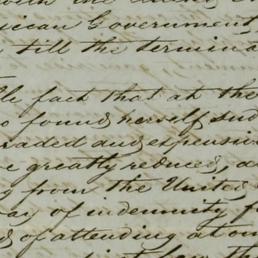 with the
ican Government
till the termina
le fact that at the
o found herself sud
raded and expensive
e greatly reduced, a
y from the United
ay of indemnity f
of attending at on